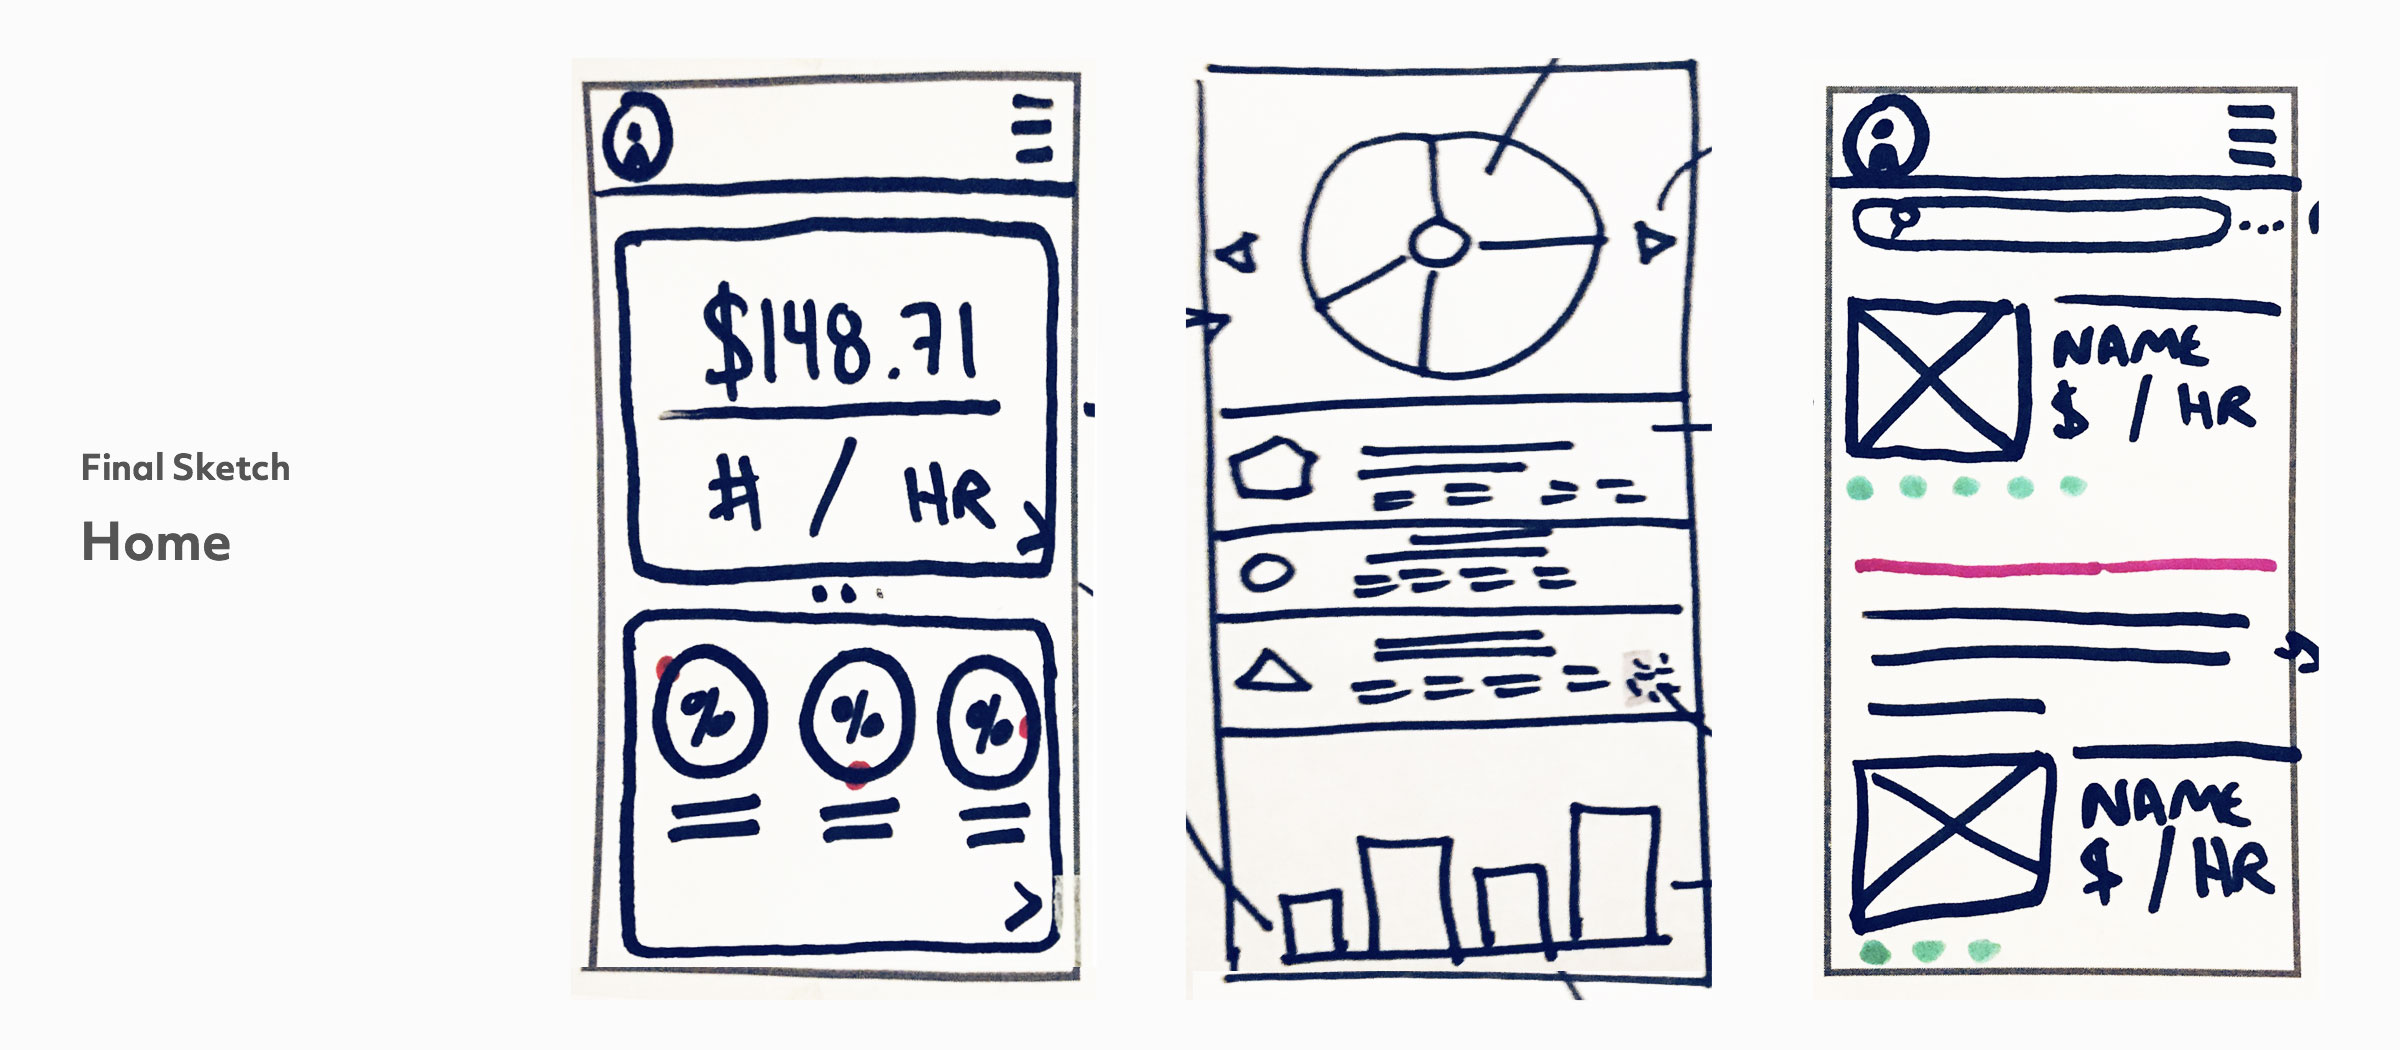 Final Sketch
Home
$148.71
# / HR
%
%
%
NAME
$ / HR
NAME
$ / HR